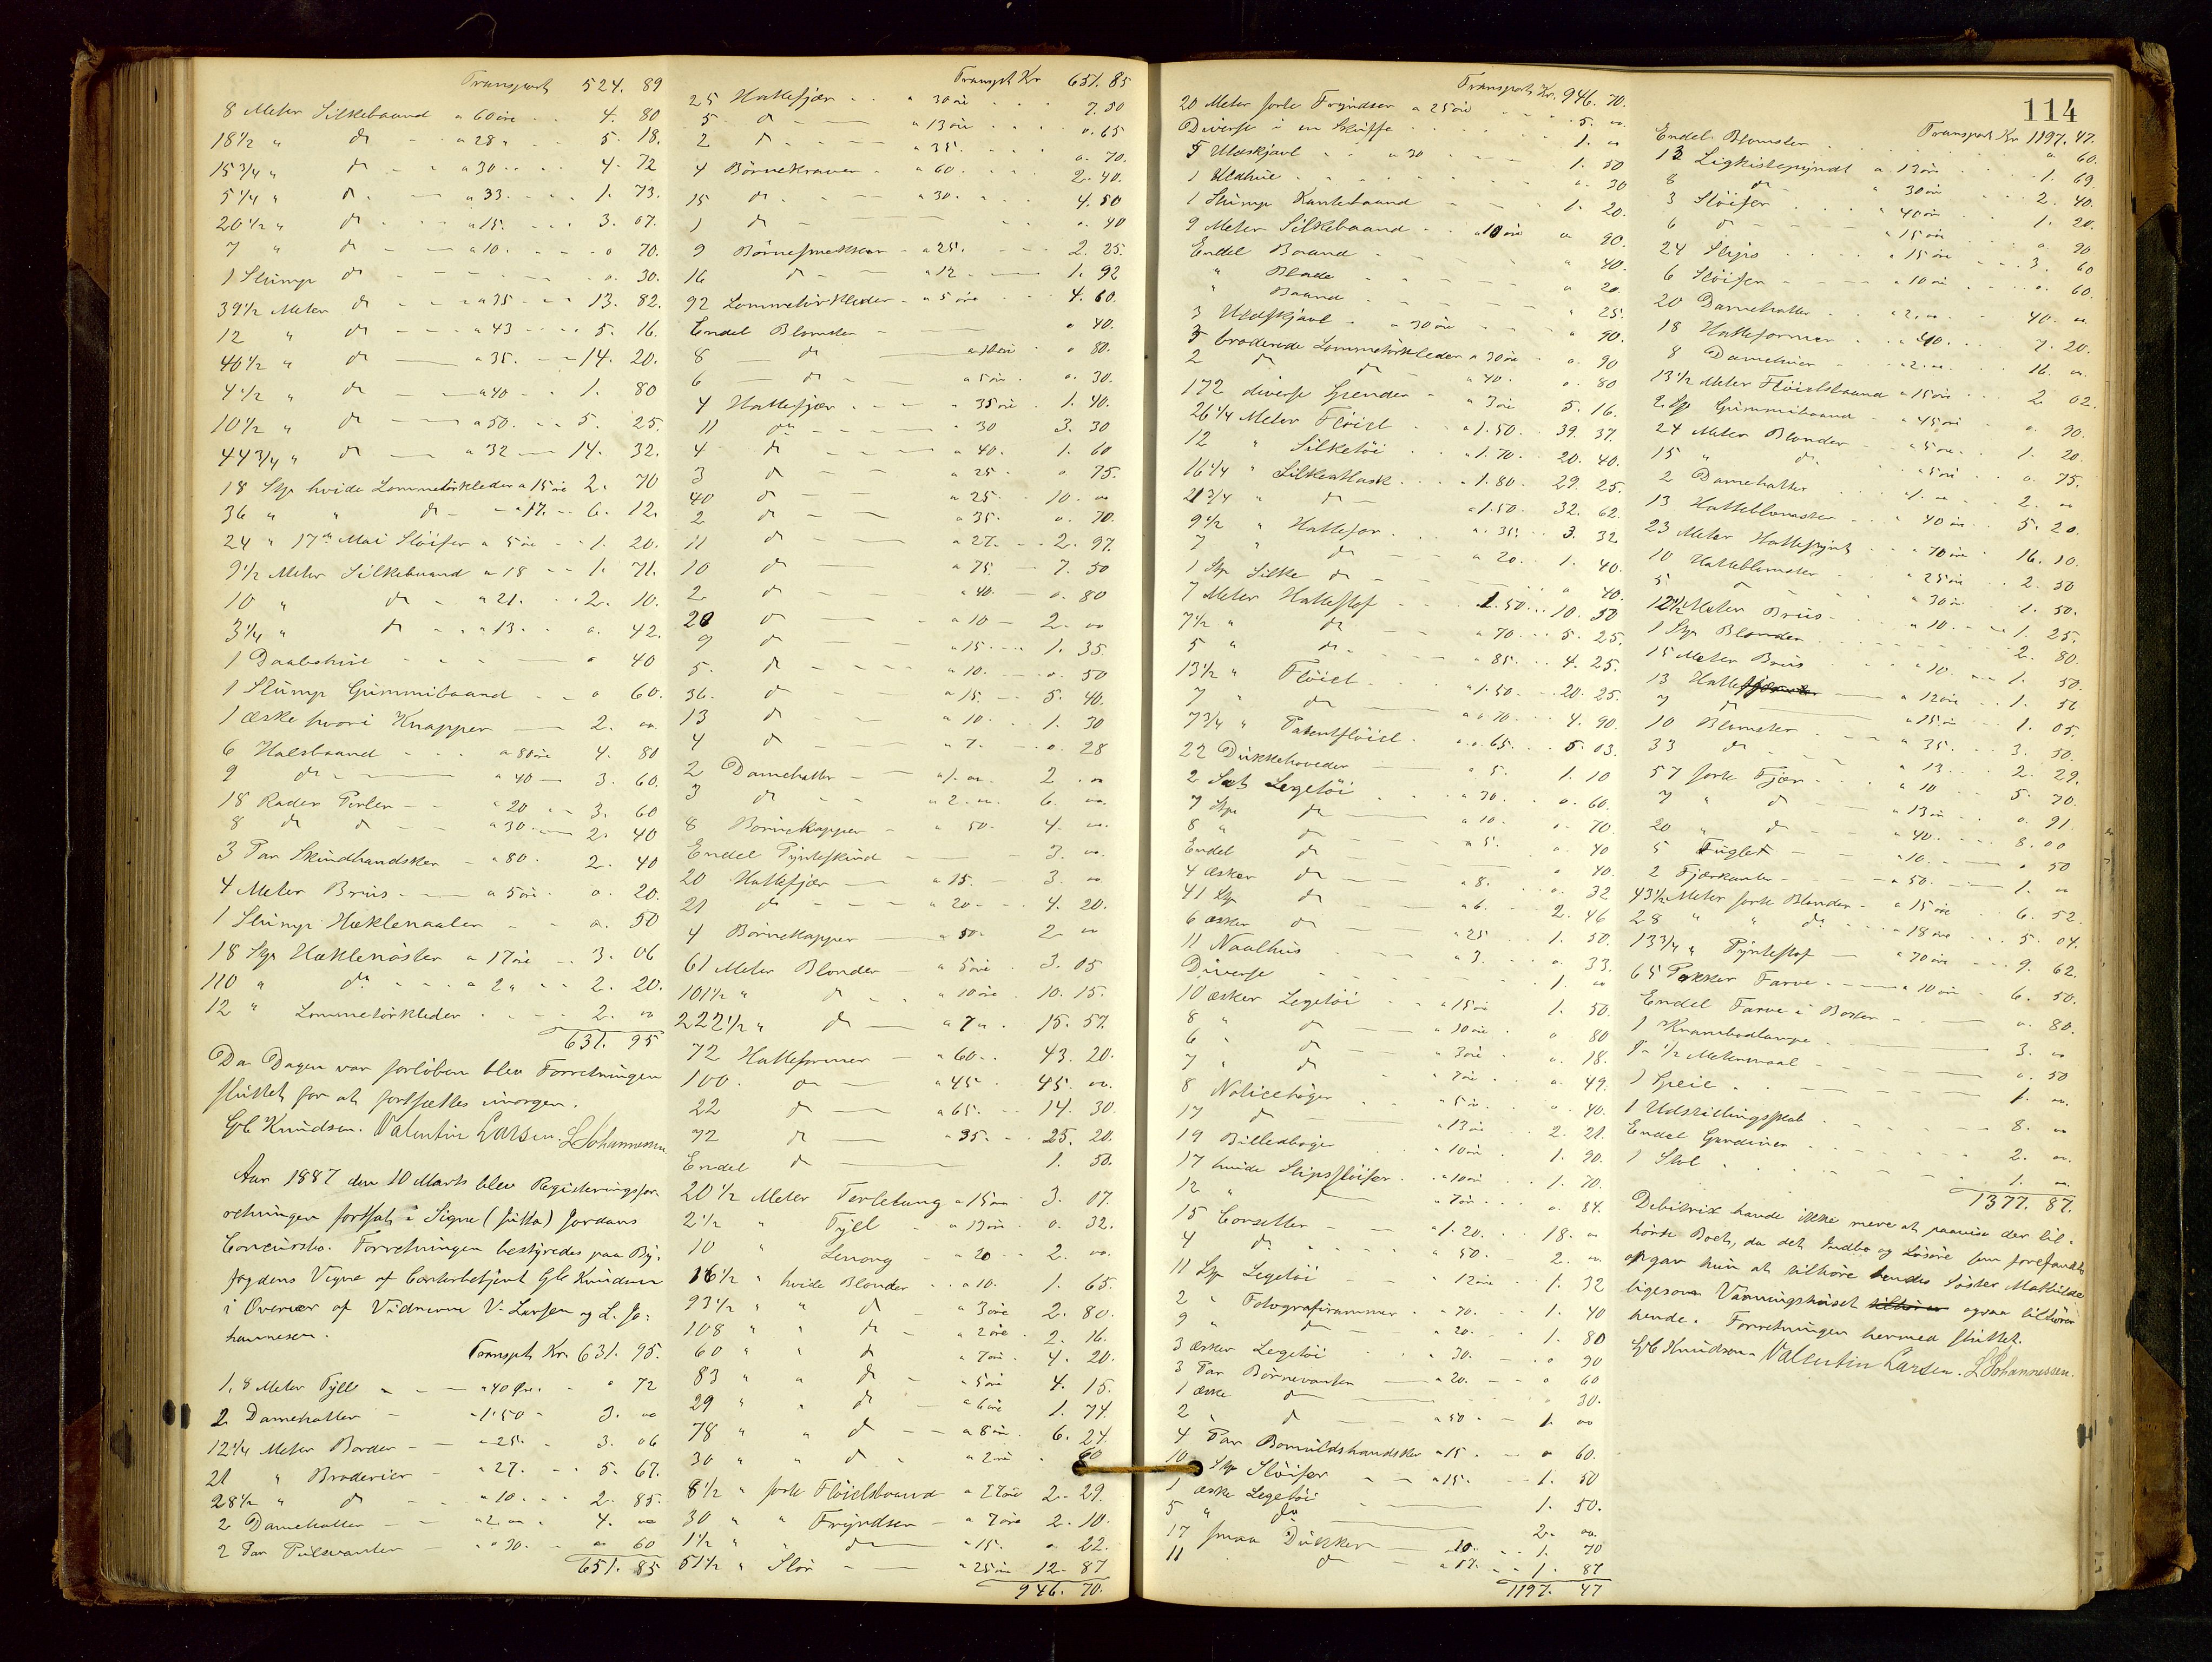 Transport 524. 89
8 Meter Silkebaand a 60 øre 4. 80
18 1/2 " do " a 28 " 5. 18.
15 3/4 " do a 30 4. 72
5 1/4 " do a 33. 1. 73.
20 1/2 " do a 15. 3. 07.
7 " do a 10. o 70.
1 Stump do o. 30.
39 1/2 Meter do a 35 13. 82.
12 " do a 43 5. 16.
40 1/2 " do a 35. 14. 20.
4 1/2 " do a 40 1. 80
10 1/2 " do a 50. 5. 25.
44 3/4 " do a 32 14. 32.
18 Stk hvide Lommetörkleder a 15 öre 2. 70
36 " " do a 17. 6. 12.
24 " 17de Mai Slöifer a 5 öre 1. 20.
9 1/2 Meter Silkebaand a 18 1. 71.
10 " do a 21. 2. 10.
3 1/4 " do a 13. o. 42.
1 Daabshue o 40
1 Stump Gummibaand o 60.
1 æske hvori Knapper 2. oo
6 Halsbaand a 80 öre 4. 80
9 do a 40 3. 60.
18 Rader Perler a 20 3. 60
8 do do a 30. 2. 40
3 Par Skindhandsker a 80. 2. 40
4 Meter Brüs a 5 öre o. 20.
1 Stump Heklenaaler o. 50
18 Stk Heklenöster a 17 öre 3. 06
110 " do a 2 " 2. 20.
12 " Lommetörkleder 2. oo
631. 95
Da Dagen var forløben blev Forretningen
sluttet for at fortsættes imorgen.
Gb Knudsen. Valentin Larsen. L Johannessen
Aar 1887 den 10 Marts blev Registeringsfor-
retningen fortsat i Signe (Jutta) Jordans
Concursbo. Forretningen bestyredes paa By-
fogdens Vegne af Contorbetjent Gb Knudsen
i Overvær af Vidnerne V. Larsen og L. Jo-
hannesen.
Transpt Kr. 631. 95.
1,8 Meter Tyll a 40 Øre. o 72
2 Damehatter a 1. 50 3. oo
12 1/4 Meter Border a 25. 3. 06
21 " Broderier a 27. 5. 67.
28 1/2 " do a 10. 2. 85.
2 Damehatter a 2. oo 4. oo
2 Par Pulsvanter a 30. o 60
651. 85
Transpt Kr 651. 85
25 Hattefjær a 30 öre 7. 50
5 do a 13 öre o. 65
2 do a 35. o. 70.
4 Börnekraver a 60. 2. 40.
15 do a 30. 4. 50
1 do o. 40
9 Börnesmekker a 25. 2. 25.
16 do a 12 1. 92
92 Lommetörkleder a 5 öre 4. 60.
Endel Blomster o 40.
8 do a 10 öre o 80.
6 do a 5 öre o. 30.
4 Hattefjær a 35 öre 1. 40.
11 do a 30 3. 30
4 do a 40. 1. 60
3 do a 25 o 75.
40 do a 25. 10. oo
2 do a 35. o. 70.
11 do a 27. 2. 97.
10 do a 75 7. 50
2 do a 40. o. 80
20 do a 10 2. oo
9 do a 15 1. 35
5. do a 10. o. 50
36. do a 15 5. 40.
13 do a 10. 1. 30
4 do a 7. o. 28
2 Damehatter a 1. oo 2. oo
3 do a 2. oo. 6. oo.
8 Börnekapper a 50. 4. oo.
Endel Pynteskind 3. oo.
20 Hattefjær a 15. 3. oo
21 do a 20 4. 20.
4 Börnekapper a 50. 2. oo
61 Meter Blonder a 5 öre 3. 05
101 1/2 " do a 10 öre 10. 15.
222 1/2 " do a 7 " 15. 57.
72 Hatteformer a 60. 43. 20.
100. do a 45. 45. oo.
22 do a 65. 14. 30.
72 do a 35. 25. 20.
Endel do 1. 50.
20 1/2 Meter Tarletang a 15 öre 3. 07.
2 1/2 " Tyll a 13 öre o. 32.
10 " Lenong a 20 2. oo.
16 1/2 " hvide Blonder a 10. 1. 65.
93 1/2 " " do a 3 öre 2. 80.
108 " " do a 2 öre 2. 16.
60 " " do a 7 öre 4. 20.
83 " " do a 5 öre 4. 15.
29 " " do a 6 öre 1. 74.
78 " " do a 8 öre 6. 24.
30 " " do a 2 öre 60
8 1/2 " sorte Flöielsbaand a 27 öre 2. 29.
30 " " Fryndser a 7 öre 2. 10.
1 1/2 " " do a 15. o. 22.
51 1/2 " Slör a 25 öre 12. 87
946. 70.
Transport Kr. 946. 70.
20 Meter sorte Fryndser a 25 öre 5. oo.
Diverse i en Skuffe 1. oo
5 Uldskjærf a 30 1. 50
1 Uldhue o. 30
1 Stump Kantebaand 1. 20.
9 Meter Silkebaand a 10 öre o. 90.
Endel Baand o 40.
" Blade o 20
" Baand o 25.
3 Uldskjærf a 30 öre o 90.
3 broderede Lommetörkleder a 30 öre o. 90
2 do do a 40. o. 80
172 diverse Grender a 3 öre 5. 16.
26 1/4 Meter Flöiel a 1. 50. 39. 37.
12 " Silketöi a 1. 70. 20. 40.
16 1/4 " Silkeatlask a 1. 80. 29. 25.
21 3/4 " do a 1. 50. 32. 62.
9 1/2 " Hattefor a. 35. 3. 32
7 " do a 20. 1. 40.
1 Stk Silke do o 40.
7 Meter Hattestof 1. 50. 10. 50
7 1/2 " do a 70. 5. 25.
5 " do a 85. 4. 25.
13 1/2 " Flöiel a 1. 50. 20. 25.
7 " do a o. 70. 4. 90.
7 3/4 " Patentflöiel a. o. 65. 5. 03.
22 Dukkehoveder a 5. 1. 10
2 Sæt Legetöi a 30. o. 60.
7 Stk do a 10. o. 70.
8 " do a 5. o 40
Endel do o 40.
4 æsker do a 8. o. 32
41 Stk do a 6. 2. 46
6 æsker do a 25 1. 50.
11 Naalhus a 3. o. 33.
Diverse 1. oo
10 æsker Legetöi a 15 öre 1. 50.
8 " do a 10 öre o 80
6 " do a 3 öre o. 18.
7 " do a 7 öre o. 49.
8 Noticeböger a 5 öre o. 40.
17 do a 13 öre 2. 21.
19 Billedböger a 10 öre 1. 90.
17 hvide Slipsslöifer a 10 öre 1. 70.
12 " do a 7 öre o. 84.
15 Corsetter a 1. 20. 18. oo
4 do a 50. 2. oo
11 Stk Legetöi a 12 öre 1. 32
2 " Fotografirammer a 70. 1. 40
9 " do a 20. 1. 80
3 æsker Legetöi a 30. o 90
3 Par Börnevanter a 20. o 60
1 æske do 30.
2 " do a 50 1. oo
4 Par Bomuldshandsker a 15. o 60.
10 Stk Slöifer a 15. 1. 50
1 æske Legetöi 1. 50.
5 " do 2. oo.
17 smaa Dukker a 10. 1. 70
11 do a 17. 1. 87
1197. 47
114
Transport Kr 1197. 47.
Endel Blomster o 60.
13 Ligkistepyndt a 13 öre 1. 69
8 do a 30 öre 2. 40.
3 Slöifer a 40 öre 1. 20.
6 do a 15 öre o. 90
24 Slips a 15 öre 3. 60
6 Slöifer a 10 öre o. 60.
20 Damehatter a 2. oo. 40. oo.
18 Hatteformer a 40. 7. 20.
8 Damehuer a 2. oo. 16. oo.
13 1/2 Meter Flöielsbaand a 15 öre 2. 02.
2 Stk Gummibaand a 45 öre o. 90.
24 Meter Blonder a 5 öre 1. 20.
15 " do a 5 öre o. 75.
2 Damehatter a 1. oo 2. oo
13 Hatteblomster a 40 öre 5. 20.
23 Meter Hattepynt a 70 öre 16. 10.
10 Hatteblomster a 25 öre 2. 50
5 do a 30 öre 1. 50.
12 1/2 Meter Brüs a 10. 1. 25.
1 Stk Blonder 2. 80.
15 Meter Brüs a 10. 1. 50.
13 Hatte a 12 öre 1. 56
7 do a 15 öre 1. 05.
10 Blomster a 35. 3. 50.
33 do a 13 2. 29.
57 sorte Fjær a 10 5. 70.
7 " do a 13 öre o. 91.
20 " do a 40. 8. 00
5 Fugle a 10. o 50
2 Fjærkanter a 50. 1. oo
43 1/2 Meter sorte Blonder a 15 öre 6. 52.
28 " " do a 18 öre 5. 04.
13 3/4 " Pyntestof a 70 öre 9. 62.
65 Pakker Farve a 10 öre 6. 50.
Endel Farve i Boxer o. 80.
1 Krambodlampe 3. oo
2 1/2 Metermaal o. 50
1 Speil 1. oo.
1 Udstillingsskab 8. oo
Endel Gardiner 2. oo.
1 Stol 1. oo.
1377. 87.
Debitrix havde ikke mere at paavise der til-
hörte Boet, da det Indbo og Lösöre som forefandtes
opgav hun at tilhöre hendes Söster Mathilde
ligesom Vaaningshuset ogsaa tilhörer
hende. Forretningen hermed sluttet.
Gb Knudsen Valentin Larsen. L Johannessen.